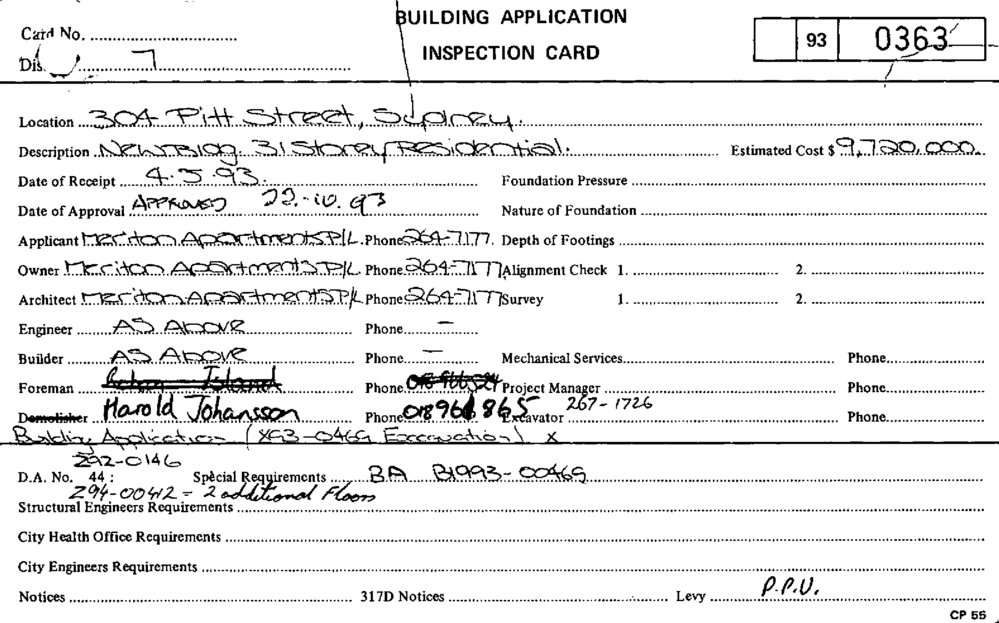 BUILDING APPLICATION
INSPECTION CARD
Card No.
93 0363
Dis 7
Location 304 Pitt Street, Sydney.
Description New Bldg 31 Storey Residential. Estimated Cost $ 9,720,000.
Date of Receipt 4.5.93. Foundation Pressure
Date of Approval APPROVED 22.-10.93 Nature of Foundation
Applicant Meriton Apartments P/L. Phone 264-7177. Depth of Footings
Owner Meriton Apartments P/L Phone 264-7177 Alignment Check 1. 2.
Architect Meriton Apartments P/L Phone 264-7177 Survey 1. 2.
Engineer AS Above Phone –
Builder AS Above Phone – Mechanical Services Phone
Foreman Island Phone 018 Project Manager Phone
Demolisher Harold Johansson Phone 018 961 865 Excavator 267-1726 Phone
Building Application (X93-0469 Excavation) X
Z92-0146
D.A. No. 44: Special Requirements BA B1993-00469
Z94-00412 = 2 additional Floors
Structural Engineers Requirements
City Health Office Requirements
City Engineers Requirements
Notices 317D Notices Levy P.P.U.
CP 55